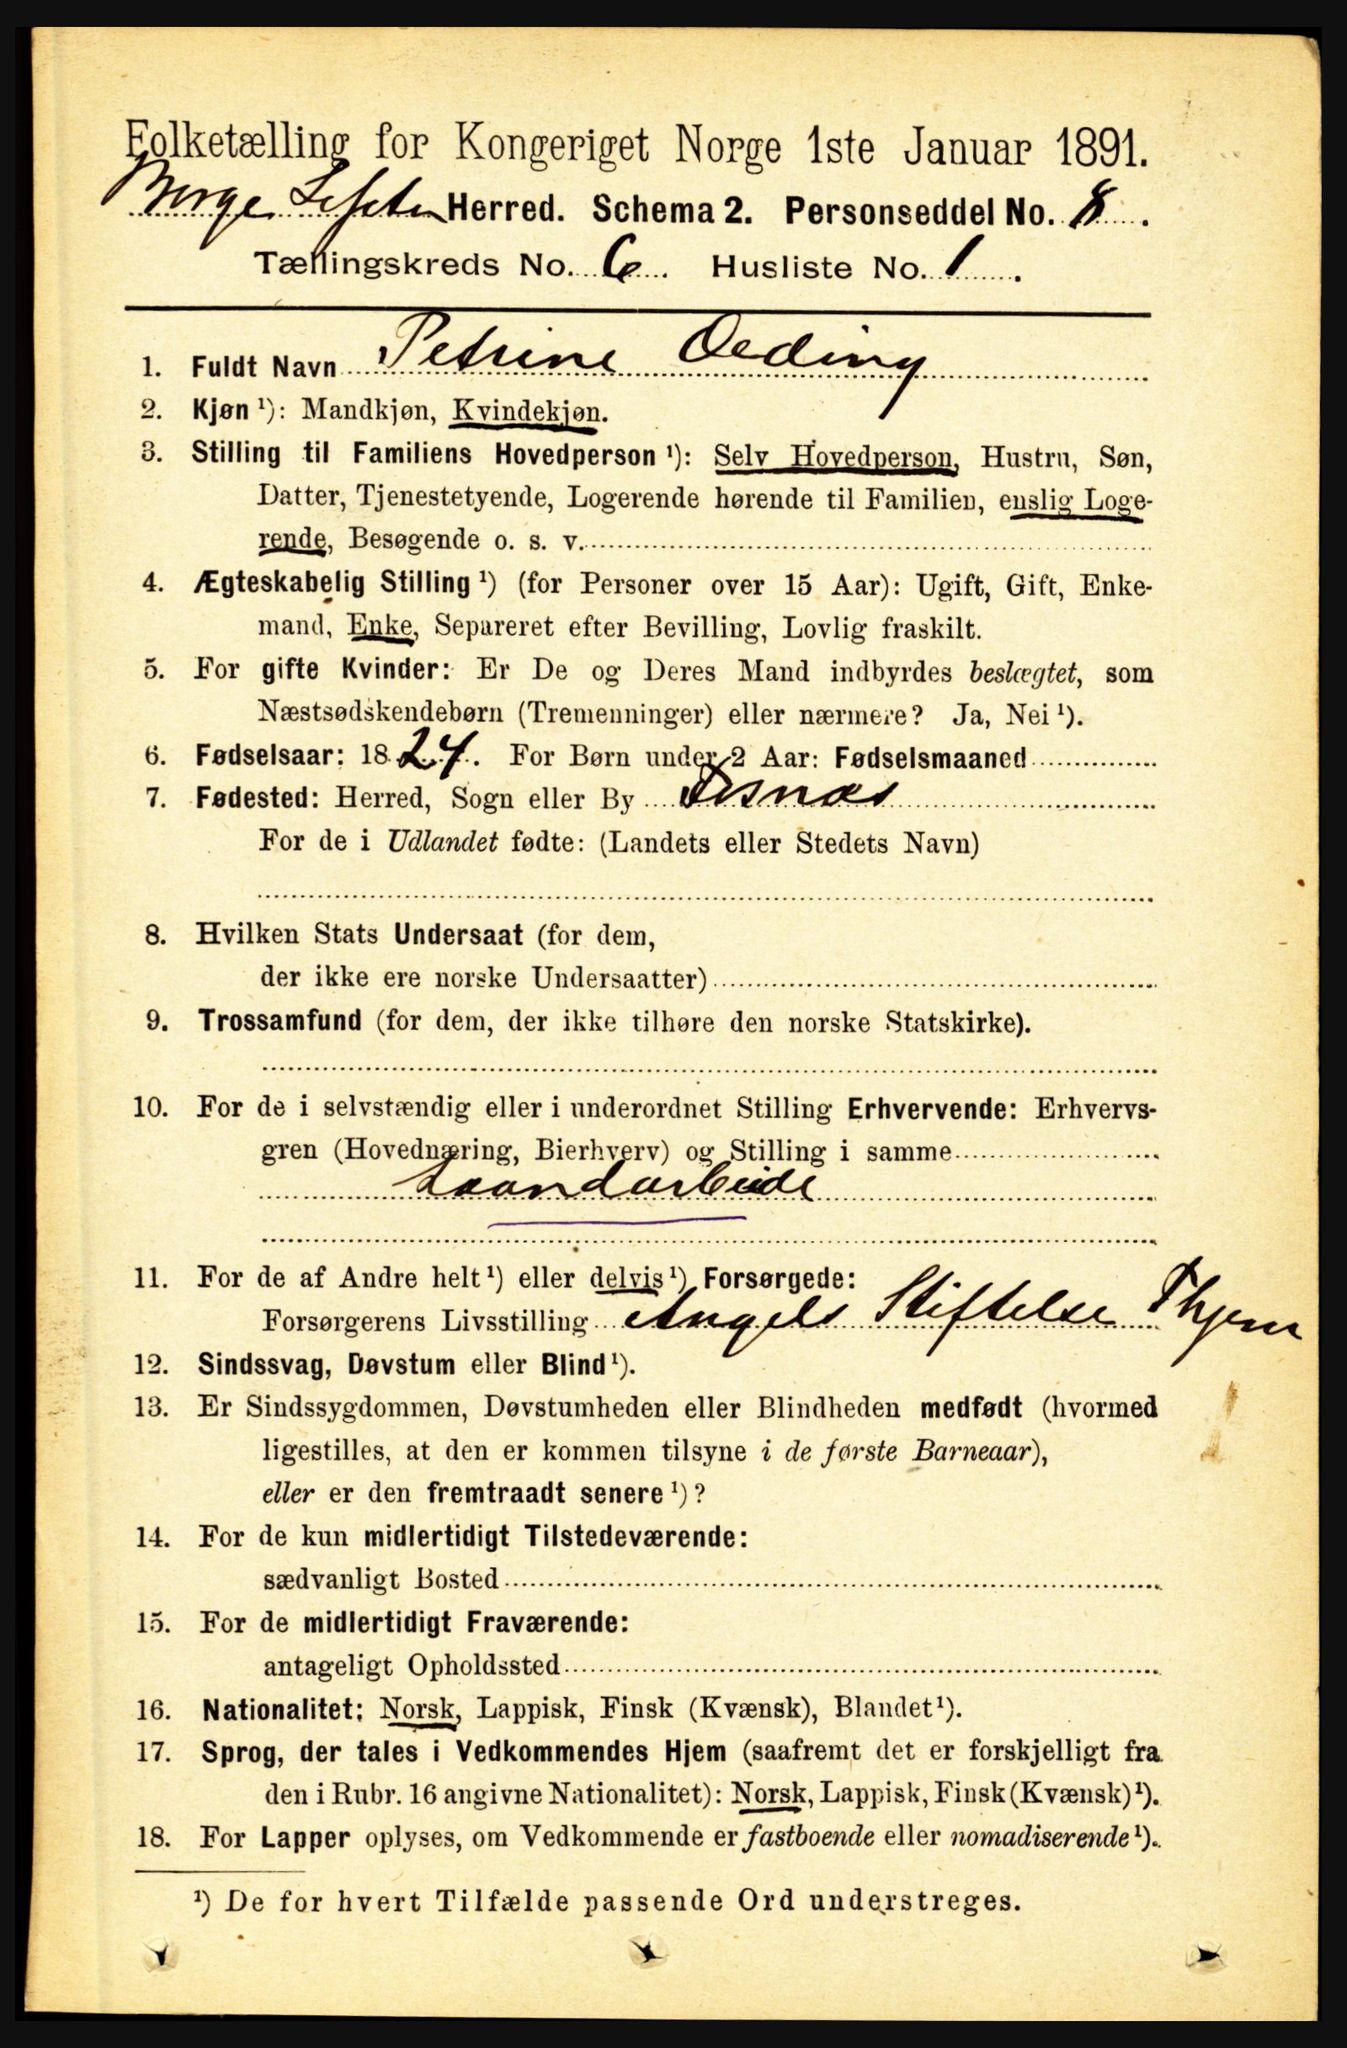 Folketælling for Kongeriget Norge 1ste Januar 1891.
Borge Lofoten Herred. Schema 2. Personseddel No. 8.
Tællingskreds No. 6. Husliste No. 1.
1. Fuldt Navn Petrine Oeding
2. Kjøn ¹): Mandkjøn, Kvindekjøn.
3. Stilling til Familiens Hovedperson ¹): Selv Hovedperson, Hustru, Søn,
Datter, Tjenestetyende, Logerende hørende til Familien, enslig Loge-
rende, Besøgende o. s. v.
4. Ægteskabelig Stilling ¹) (for Personer over 15 Aar): Ugift, Gift, Enke-
mand, Enke, Separeret efter Bevilling, Lovlig fraskilt.
5. For gifte Kvinder: Er De og Deres Mand indbyrdes beslægtet, som
Næstsødskendebørn (Tremenninger) eller nærmere? Ja, Nei ¹).
6. Fødselsaar: 1824. For Børn under 2 Aar: Fødselsmaaned
7. Fødested: Herred, Sogn eller By
For de i Udlandet fødte: (Landets eller Stedets Navn)
8. Hvilken Stats Undersaat (for dem,
der ikke ere norske Undersaatter)
9. Trossamfund (for dem, der ikke tilhøre den norske Statskirke).
10. For de i selvstændig eller i underordnet Stilling Erhvervende: Erhvervs-
gren (Hovednæring, Bierhverv) og Stilling i samme
Haandarbeide
11. For de af Andre helt ¹) eller delvis ¹) Forsørgede:
Forsørgerens Livsstilling Angels Stiftelse Thjem
12. Sindssvag, Døvstum eller Blind ¹).
13. Er Sindssygdommen, Døvstumheden eller Blindheden medfødt (hvormed
ligestilles, at den er kommen tilsyne i de første Barneaar),
eller er den fremtraadt senere ¹)?
14. For de kun midlertidigt Tilstedeværende:
sædvanligt Bosted
15. For de midlertidigt Fraværende:
antageligt Opholdssted
16. Nationalitet: Norsk, Lappisk, Finsk (Kvænsk), Blandet ¹).
17. Sprog, der tales i Vedkommendes Hjem (saafremt det er forskjelligt fra
den i Rubr. 16 angivne Nationalitet): Norsk, Lappisk, Finsk (Kvænsk) ¹).
18. For Lapper oplyses, om Vedkommende er fastboende eller nomadiserende ¹).
¹) De for hvert Tilfælde passende Ord understreges.